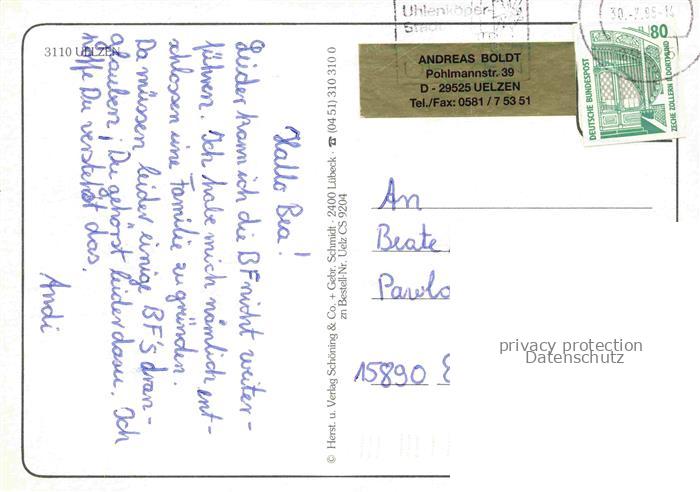 3110 UELZEN
Hallo Bea!
Leider kann ich die BF nicht weiter-
führen. Ich habe mich nämlich ent-
schlossen eine Familie zu gründen.
Da müssen leider einige BF's dran-
glauben! Du gehörst leider dazu. Ich
hoffe Du verstehst das.
Andi
© Herst. u. Verlag Schöning & Co. + Gebr. Schmidt · 2400 Lübeck · ☎ (04 51) 310 310 0
zn Bestell-Nr. Uelz CS 9204
Uhlenköper-
Stadt
ANDREAS BOLDT
Pohlmannstr. 39
D - 29525 UELZEN
Tel./Fax: 0581 / 7 53 51
80
DEUTSCHE BUNDESPOST
ZECHE ZOLLERN II, DORTMUND
An
Beate
15890
privacy protection
Datenschutz